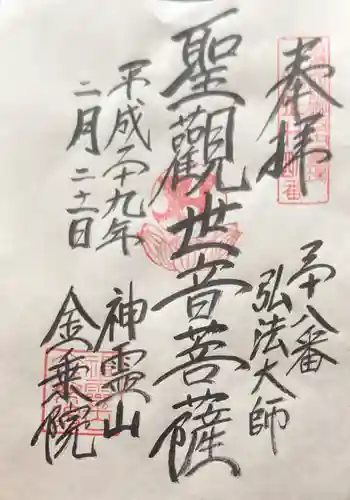 奉拝
三十八番
弘法大師
聖觀世音菩薩
平成二十九年
二月二十二日
神霊山
金乗院